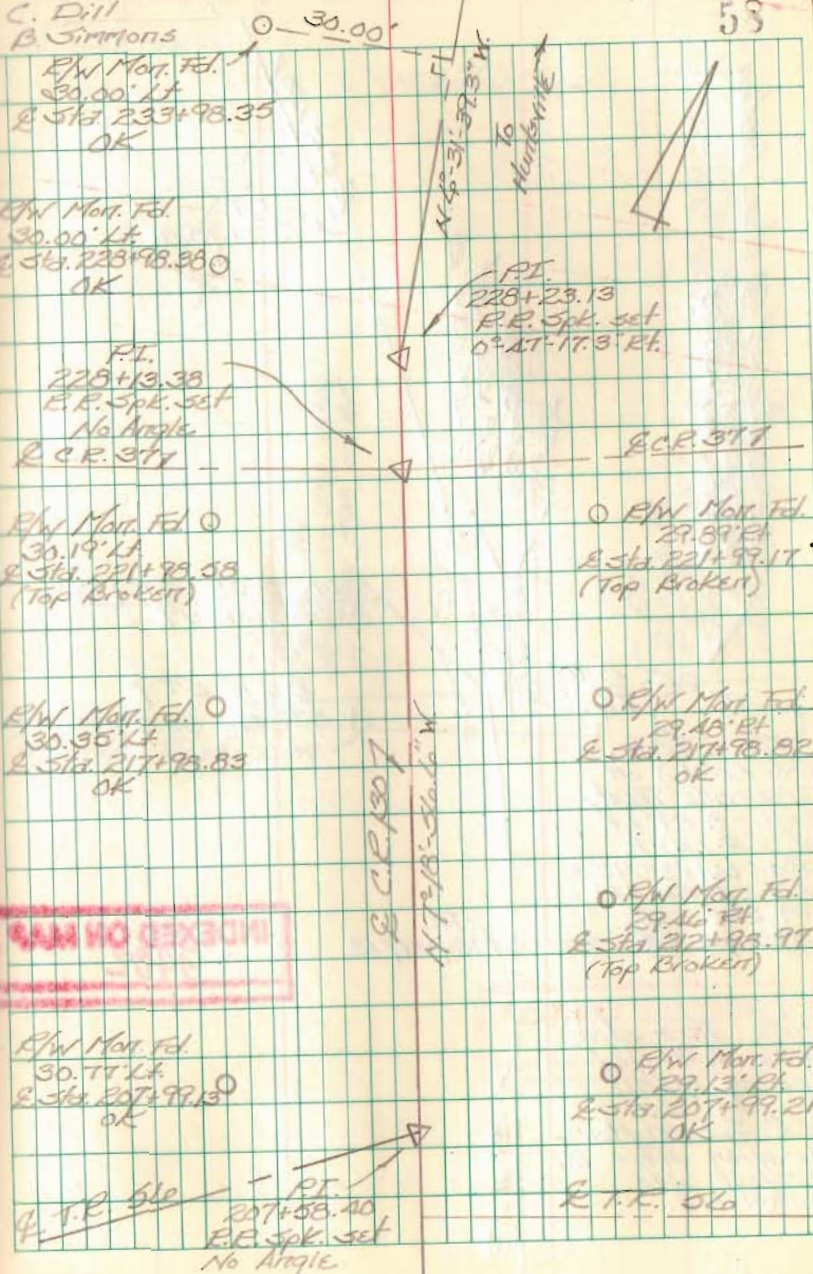 C. Dill
B. Simmons
30.00'
53
R/W Mon. Fd.
30.00' Lt.
℄ Sta. 233+98.35
OK
To
Huntsville
R/W Mon. Fd.
30.00' Lt.
℄ Sta. 228+98.38
OK
P.I.
228+23.13
R.R. Spk. set
0°-47'-17.3" Rt.
P.I.
228+13.38
R.R. Spk. set
No Angle
℄ C.R. 377
℄ C.R. 377
R/W Mon. Fd.
30.19' Lt.
℄ Sta. 221+98.58
(Top Broken)
R/W Mon. Fd.
29.89' Rt.
℄ Sta. 221+99.17
(Top Broken)
R/W Mon. Fd.
30.35' Lt.
℄ Sta. 217+98.83
OK
R/W Mon. Fd.
29.48' Rt.
℄ Sta. 217+98.82
OK
N 7°-18'-56.6" W
R/W Mon. Fd.
29.46' Rt.
℄ Sta. 212+98.97
(Top Broken)
INDEXED ON MAP
R/W Mon. Fd.
30.77' Lt.
℄ Sta. 207+99.13
OK
R/W Mon. Fd.
29.13' Rt.
℄ Sta. 207+99.21
OK
℄ T.R. 56
P.I.
207+58.40
R.R. Spk. set
No Angle
℄ T.R. 56